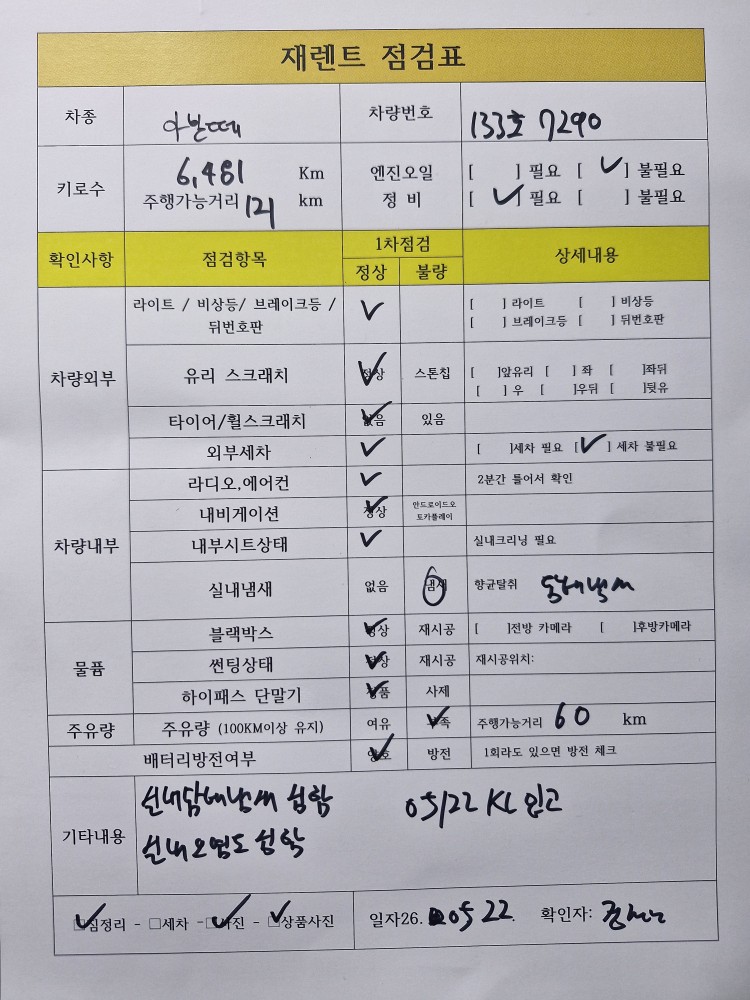 재렌트 점검표
차종 아반떼 차량번호 133호 7290
키로수 6,481 Km 엔진오일 [ ] 필요 [ ✓ ] 불필요
주행가능거리 121 km 정 비 [ ✓ ] 필요 [ ] 불필요
확인사항 점검항목 1차점검 상세내용
정상 불량
차량외부 라이트 / 비상등/ 브레이크등 / 뒤번호판 ✓ [ ] 라이트 [ ] 비상등
[ ] 브레이크등 [ ] 뒤번호판
유리 스크래치 정상 ✓ 스톤칩 [ ]앞유리 [ ] 좌 [ ]좌뒤
[ ] 우 [ ]우뒤 [ ]뒷유
타이어/휠스크래치 없음 ✓ 있음
외부세차 ✓ [ ]세차 필요 [ ✓ ] 세차 불필요
차량내부 라디오,에어컨 ✓ 2분간 틀어서 확인
내비게이션 정상 ✓ 안드로이드오토카플레이
내부시트상태 ✓ 실내크리닝 필요
실내냄새 없음 냄새 향균탈취 담배냄새
물품 블랙박스 정상 ✓ 재시공 [ ]전방 카메라 [ ]후방카메라
썬팅상태 정상 ✓ 재시공 재시공위치:
하이패스 단말기 정품 ✓ 사제
주유량 주유량 (100KM이상 유지) 여유 부족 ✓ 주행가능거리 60 km
배터리방전여부 양호 ✓ 방전 1회라도 있으면 방전 체크
기타내용 실내담배냄새 심함 05/22 KL 입고
실내오염도 심각
✓ □짐정리 - □세차 - ✓ □사진 - ✓ □상품사진 일자26. 05 22. 확인자: